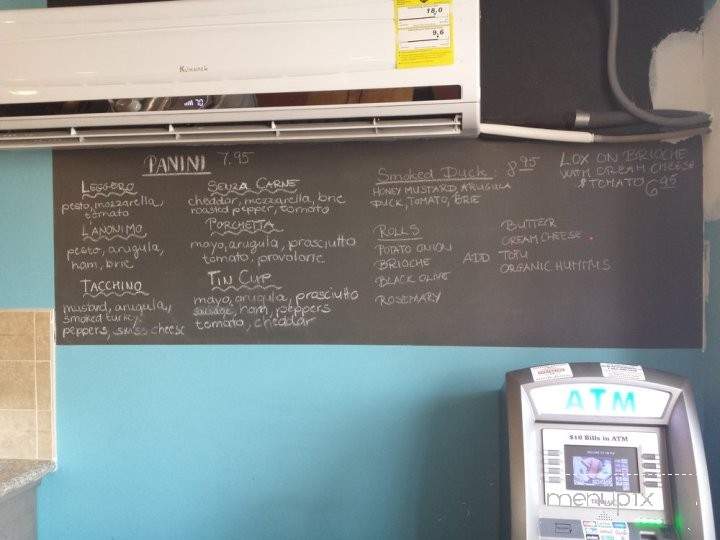 18.0
9,6
70
PANINI 7.95
LEGGERO
pesto, mozzarella,
tomato
L'ANONIMO
pesto, arugula,
ham, brie
TACCHINO
mustard, arugula,
smoked turkey,
peppers, swiss cheese
SENZA CARNE
cheddar, mozzarella, brie
roasted pepper, tomato
PORCHETTA
mayo, arugula, prosciutto
tomato, provalone
TIN CUP
mayo, arugula, prosciutto
sausage, ham, peppers
tomato, cheddar
SMOKED DUCK: 8.95
HONEY MUSTARD, ARUGULA
DUCK, TOMATO, BRIE
ROLLS
POTATO ONION
BRIOCHE
BLACK OLIVE
ROSEMARY
ADD
BUTTER
CREAM CHEESE
TOFU
ORGANIC HUMMUS
LOX ON BRIOCHE
WITH CREAM CHEESE
& TOMATO 6.95
ATM
$10 Bills in ATM
menupix